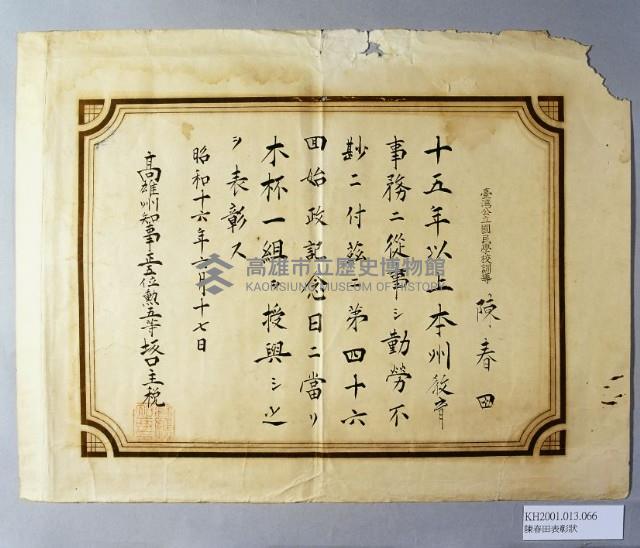 臺灣公立國民學校訓導
陳春田
十五年以上本州教育
事務ニ從事シ勤勞不
尠ニ付茲ニ第四十六
回始政記念日ニ當リ
木杯一組ヲ授與シ之
ヲ表彰ス
昭和十六年六月十七日
高雄州知事正五位勲五等坂口主税
高雄市立歷史博物館
KAOHSIUNG MUSEUM OF HISTORY
KH2001.013.066
陳春田表彰狀